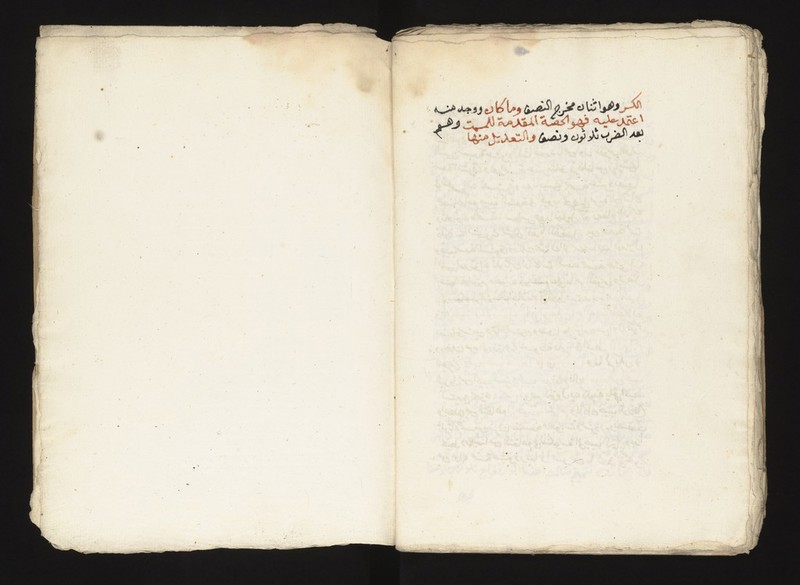 الكسر وهو اثنان مخرج النصف وما كان ووجد منه
اعتمد عليه فهو الحصة المقدمة للميت وهم
بعد الضرب ثلاثون ونصف والتعديل منها